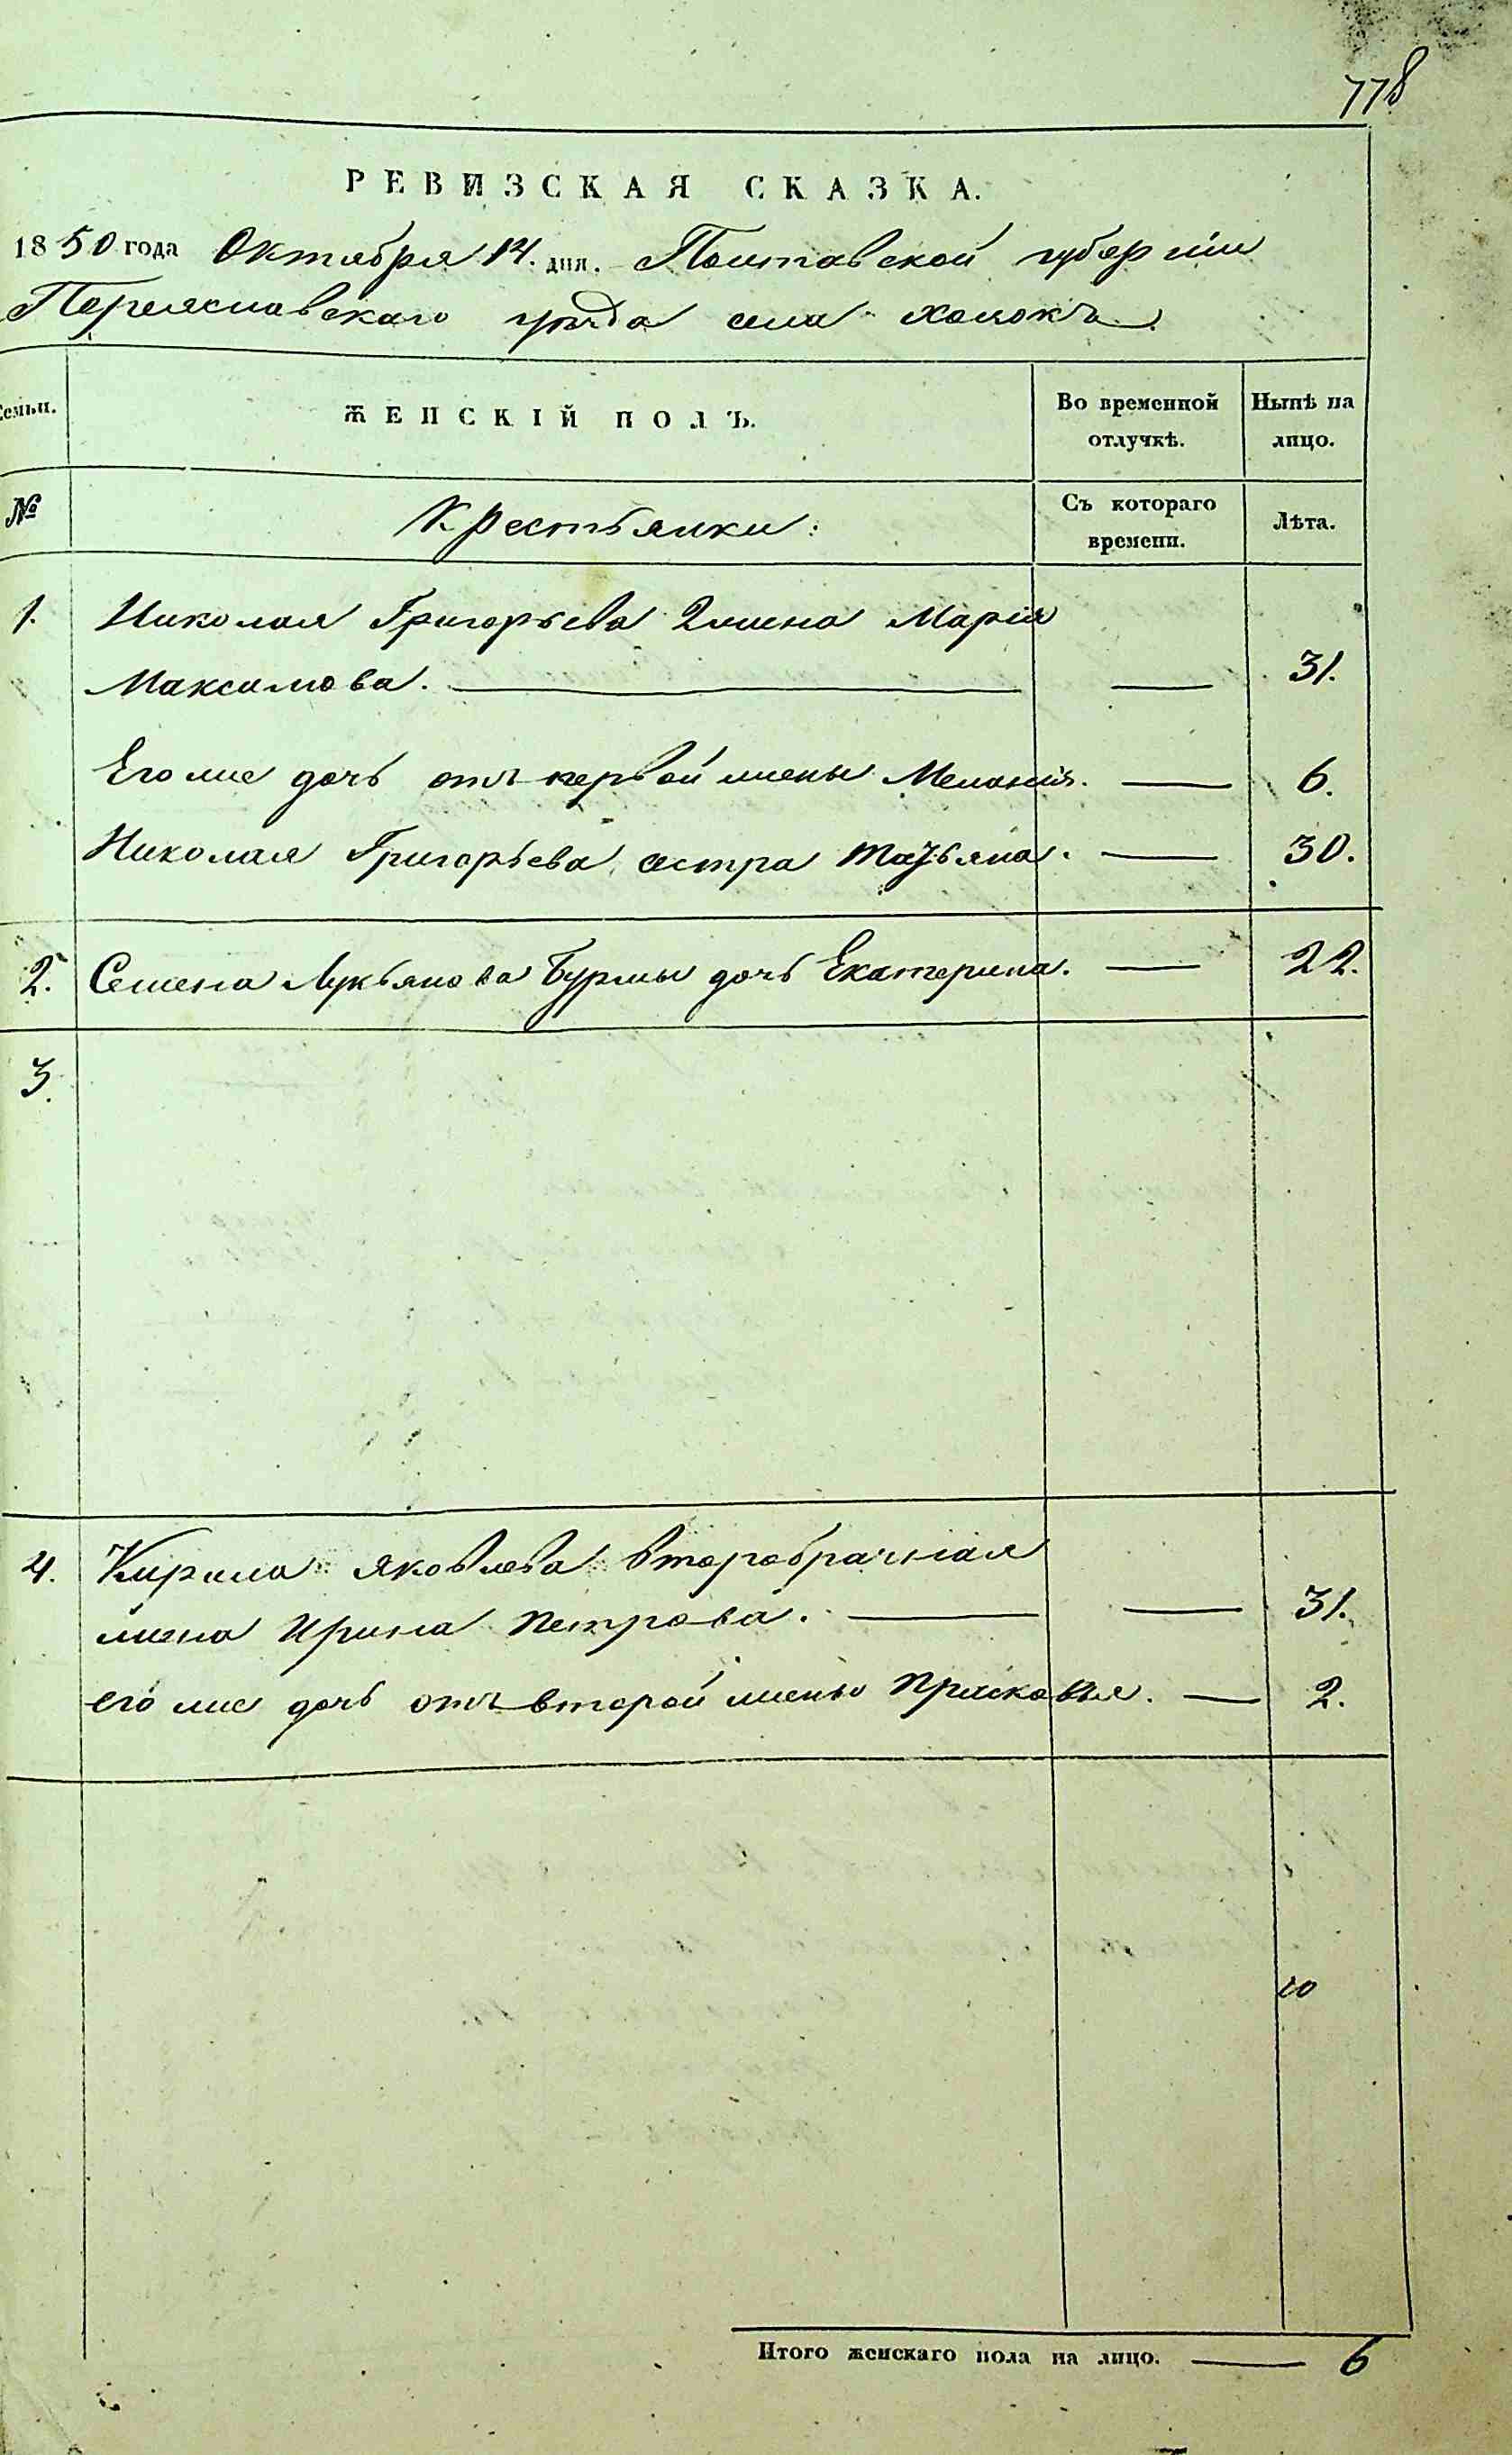 778
РЕВИЗСКАЯ СКАЗКА.
1850 года Октября 14. дня. Полтавской губерніи
Переяславскаго уѣзда села Хоцокъ
Семьи. ЖЕНСКІЙ ПОЛЪ. Во временной отлучкѣ. Нынѣ на лицо.
№ Крестьянки: Съ котораго времени. Лѣта.
1. Николая Григорьева 2 жена Марія
Максимова. — — 31.
Его же дочь отъ первой жены Меланія. — 6.
Николая Григорьева сестра Татьяна. — 30.
2. Семена Лукьянова Бурмы дочь Екатерина. — 22.
3.
4. Кирила Яковлева второбрачная
жена Ирина Петрова. — — 31.
его же дочь отъ второй жены Прасковья. — 2.
Итого женскаго пола на лицо. — 6